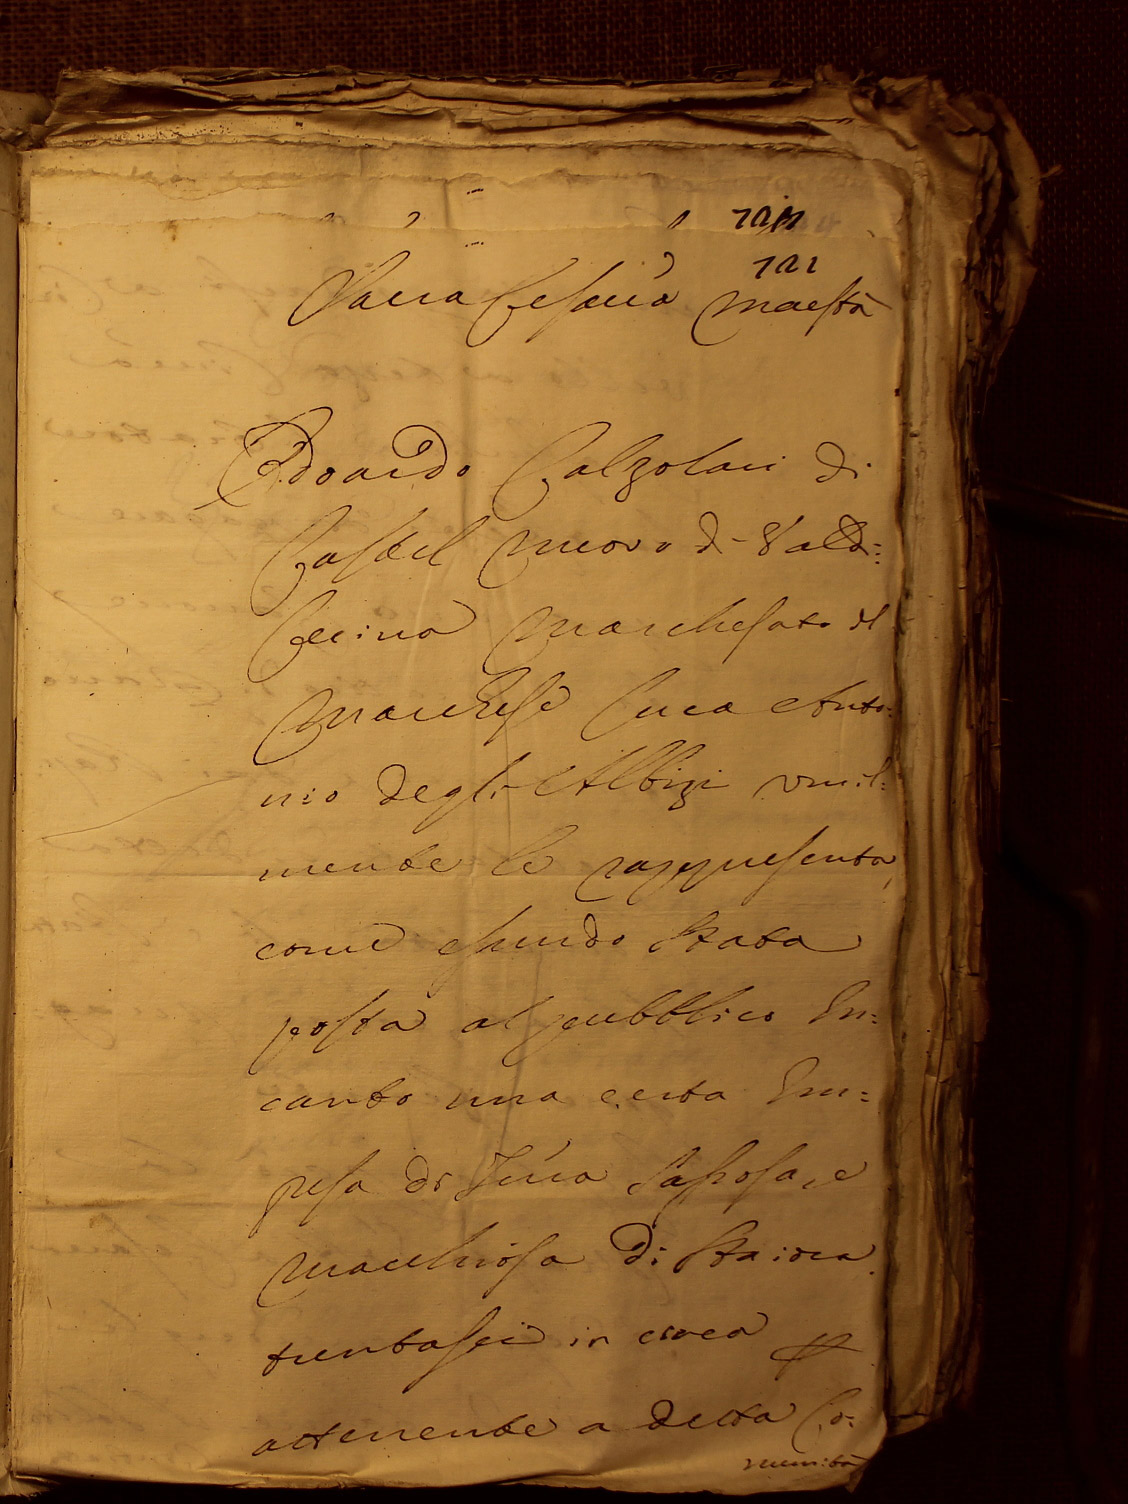 721
721
Sacra Cesarea Maestà
Edoardo Calzolari di
Castel nuovo d- Vald=
Cecina Marchesato del
Marchese Luca Anto=
nio degli Albizi umil=
mente le rappresenta,
come essendo stata
posta al pubblico In=
canto una certa Im=
presa di Terra Sassosa, e
macchiosa di staiora
trentasei in circa
attenente a detta Co=
munità